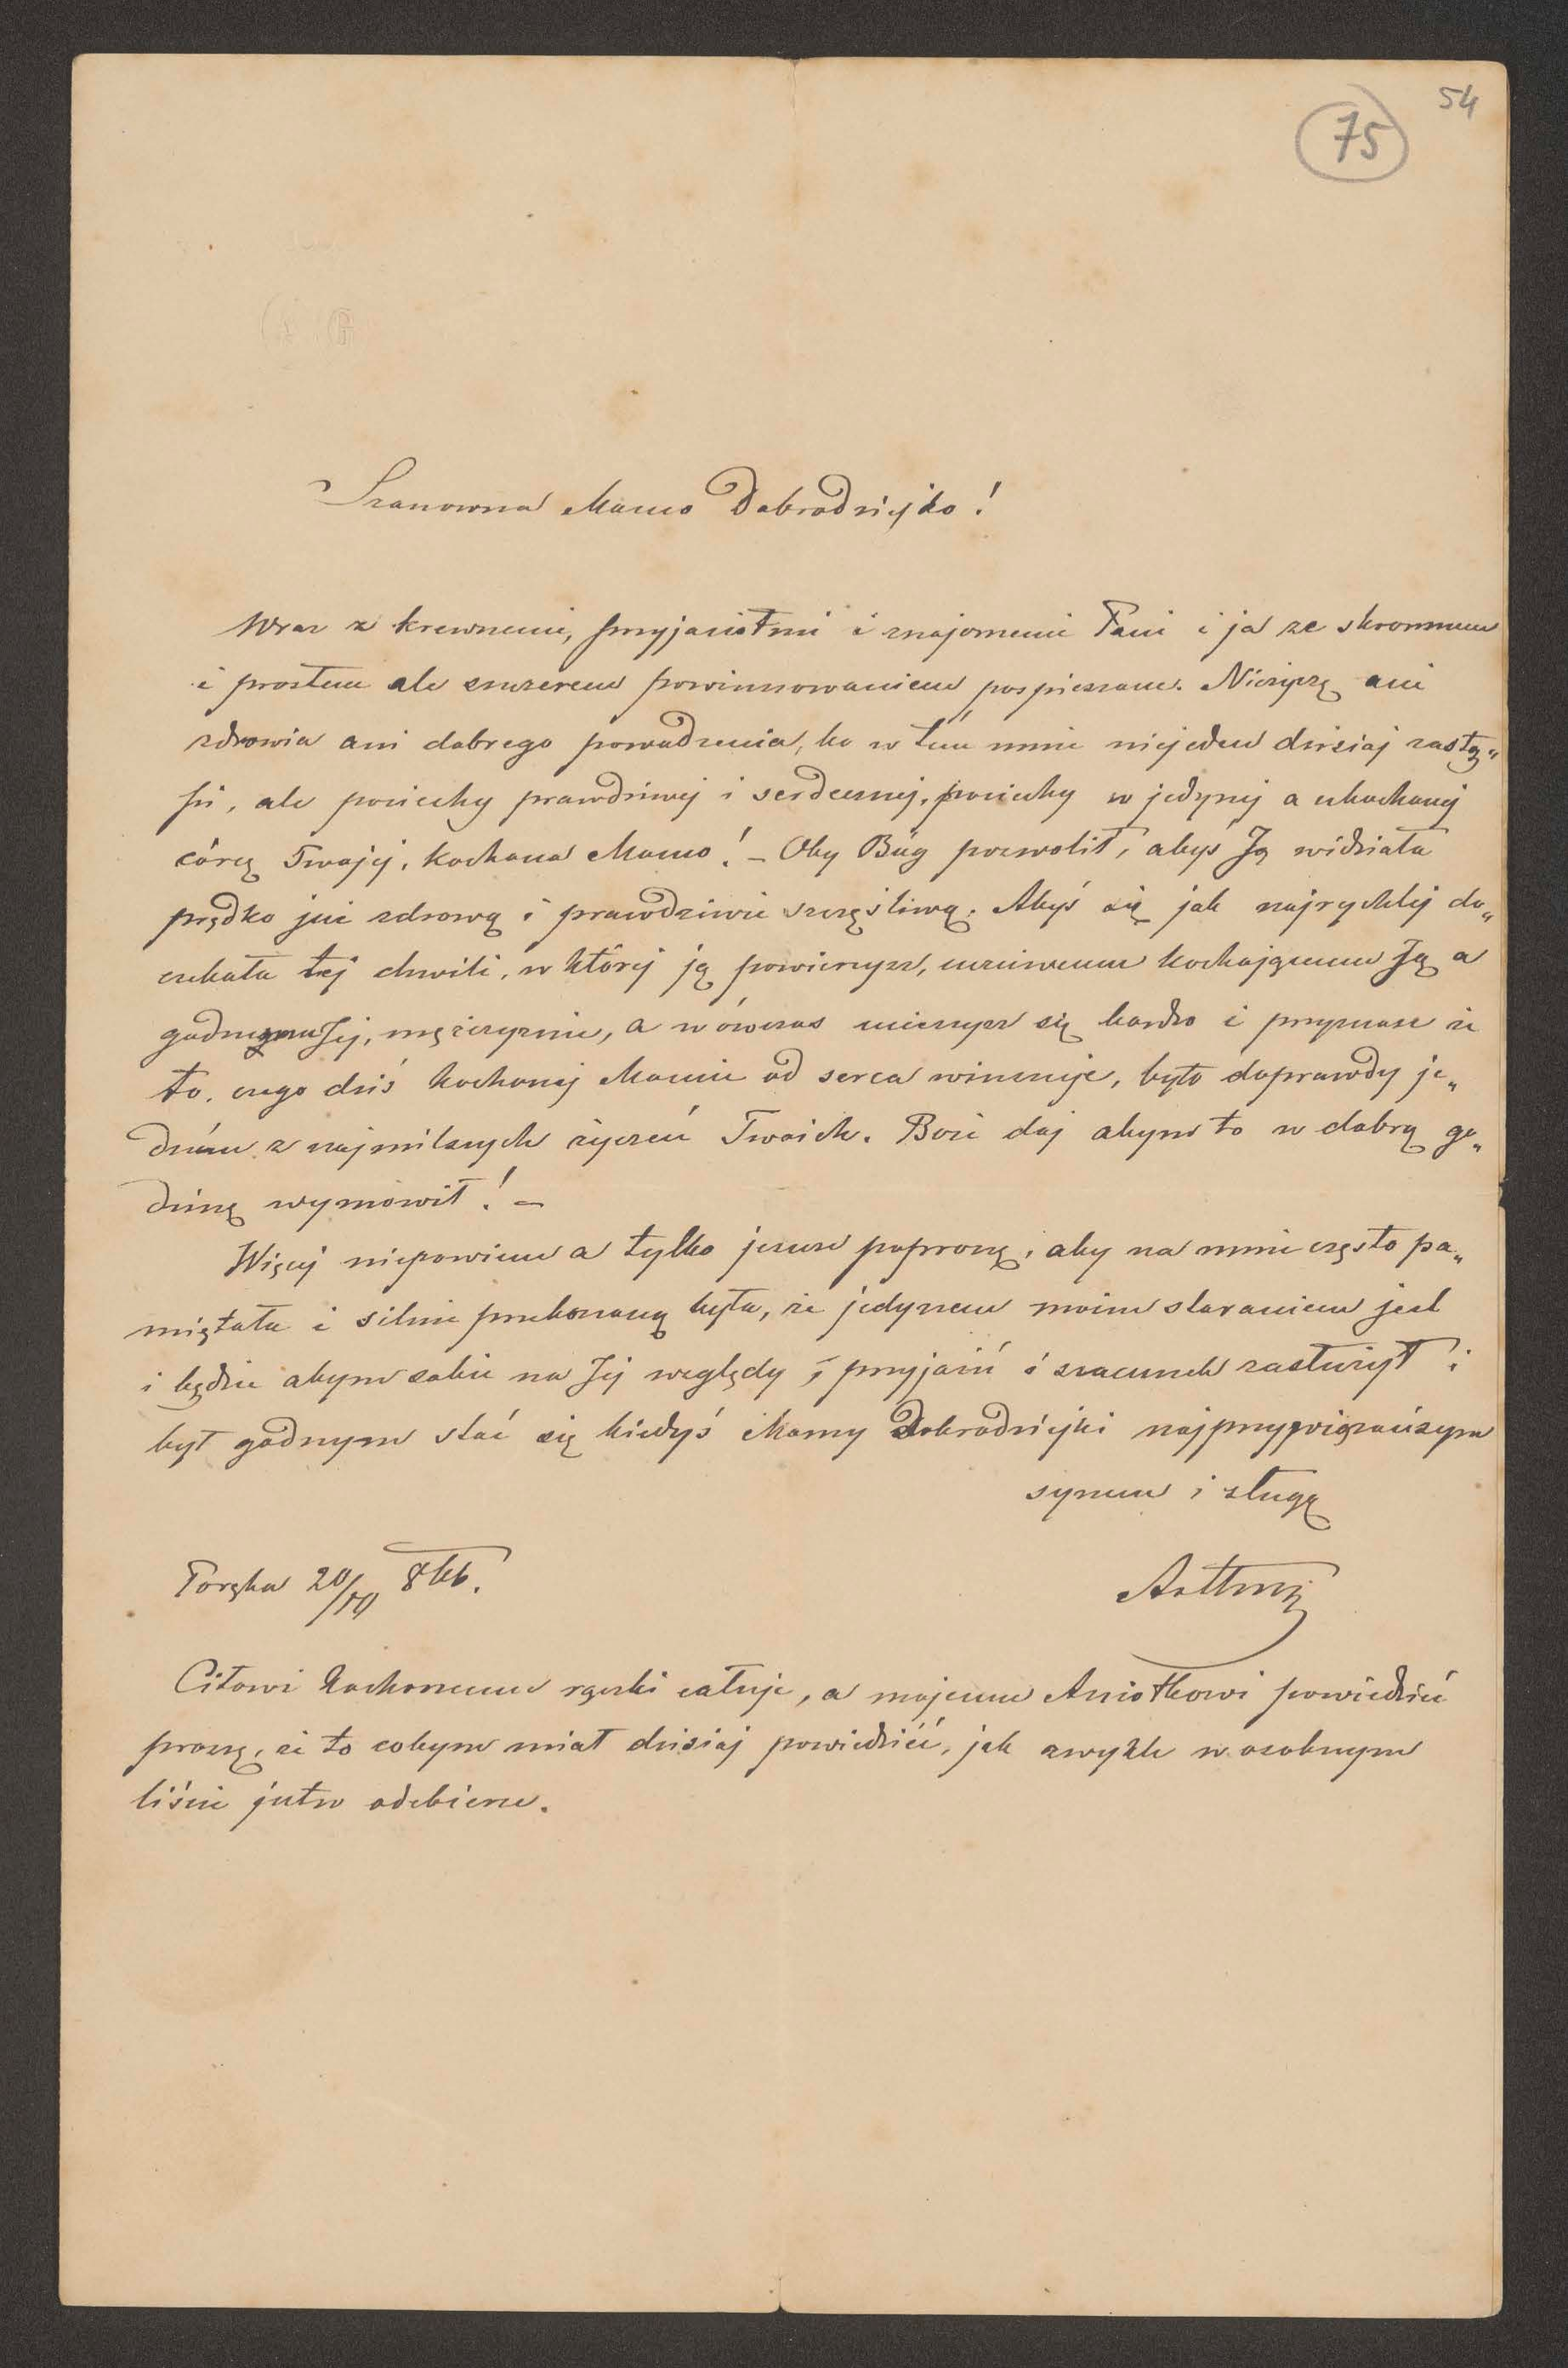 54
75
Szanowna Mamo Dobrodziejko!
Wraz z krewnemi, przyjaciołmi i znajomemi Pani i ja ze skromnem
i prostem ale szczerem powinszowaniem pospieszam. Nieżyczę ani
zdrowia ani dobrego powodzenia, bo w tém mnie niejeden dzisiaj zastą„
pi, ale pociechy prawdziwej i serdecznej, pociechy w jedynej a ukochanej
córce Twojej, kochana Mamo! – Oby Bóg pozwolił, abyś Ją widziała
prędko już zdrową i prawdziwie szczęśliwą. Abyś się jak najrychlej do„
czekała tej chwili, w której ją powierzysz, uczciwemu kochającemu Ją a
godnemu Jej, mężczyznie, a wówczas ucieszysz się bardzo i przyznasz że
to, czego dziś kochanej Mamie od serca winszuje, było doprawdy je„
dném z najmilszych życzeń Twoich. Boże daj abym to w dobrą go„
dzinę wymówił! –
Więcej niepowiem a tylko jeszcze poproszę, aby na mnie często pa„
miętała i silnie przekonaną była, że jedynem moim staraniem jest
i będzie abym sobie na Jej względy, przyjaźń i szacunek zasłużył i
był godnym stać się kiedyś Mamy Dobrodziejki najprzywiązańszym
synem i sługą
Poręba 20/10 8tb.
Artur
Citowi kochanemu rączki całuje, a mojemu Aniołkowi powiedzieć
proszę, że to cobym miał dzisiaj powiedzieć, jak zwykle w osobnym
liście jutro odbierze.